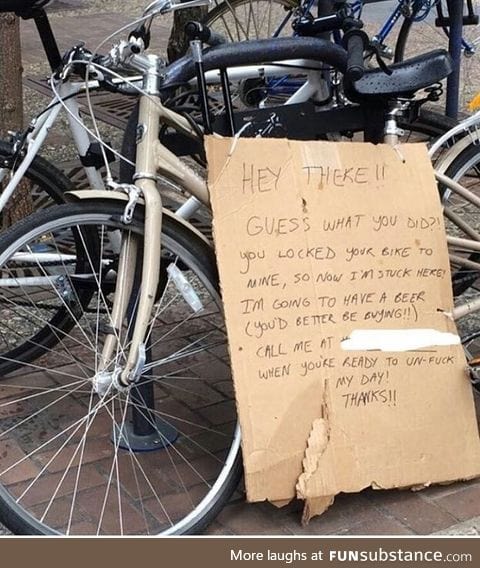 HEY THERE!!
GUESS WHAT YOU DID?!
YOU LOCKED YOUR BIKE TO
MINE, SO NOW I'M STUCK HERE!
I'M GOING TO HAVE A BEER
(YOU'D BETTER BE BUYING!!)
CALL ME AT
WHEN YOU'RE READY TO UN-FUCK
MY DAY!
THANKS!!
More laughs at FUNsubstance.com